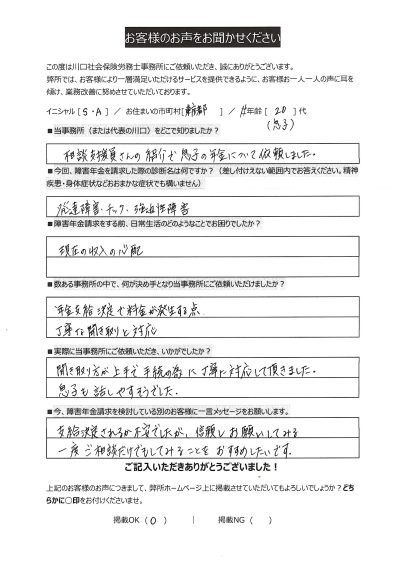 お客様のお声をお聞かせください
この度は川口社会保険労務士事務所にご依頼いただき、誠にありがとうございます。
弊所では、お客様により一層満足いただけるサービスを提供できるように、お客様お一人一人の声に耳を
傾け、業務改善に努めさせていただいております。
イニシャル [ S・A ] / お住まいの市町村 [ 東京都 ] / 年齢 [ 20 ] 代
(息子)
■当事務所（または代表の川口）をどこで知りましたか？
相談支援員さんの紹介で息子の年金について依頼しました。
■今回、障害年金を請求した際の診断名は何ですか？（差し付けえない範囲内でお答えください。精神
疾患・身体症状などおおまかな症状でも構いません）
発達障害・チック、強迫性障害
■障害年金請求をする前、日常生活のどのようなことでお困りでしたか？
現在の収入の心配
■数ある事務所の中で、何が決め手となり当事務所にご依頼いただけましたか？
年金支給決定で料金が発生する点
丁寧な聞き取りと対応
■実際に当事務所にご依頼いただき、いかがでしたか？
聞き取り方が上手で手続の為に丁寧に対応して頂きました。
息子も話しやすそうでした。
■今、障害年金請求を検討している別のお客様に一言メッセージをお願いします。
支給決定されるか不安でしたが、信頼しお願いしてみる
一度ご相談だけでもしてみることをおすすめしたいです。
ご記入いただきありがとうございました！
上記のお客様のお声につきまして、弊所ホームページ上に掲載させていただいてもよろしいでしょうか？どち
らかに〇印をお付けくださいませ。
掲載OK （ O ） | 掲載NG （ ）